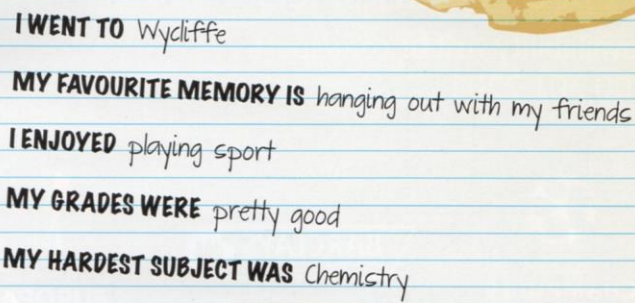 I WENT TO Wycliffe
MY FAVOURITE MEMORY IS hanging out with my friends
I ENJOYED playing sport
MY GRADES WERE pretty good
MY HARDEST SUBJECT WAS Chemistry